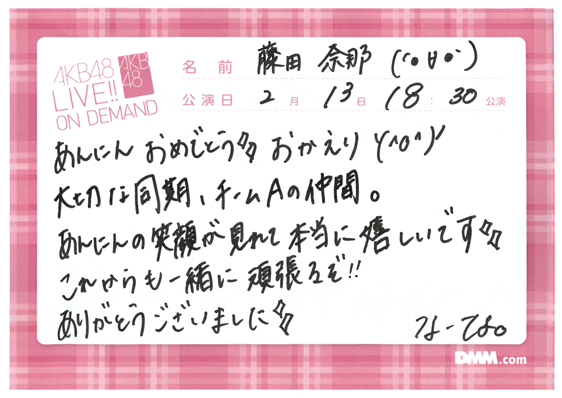 AKB48
LIVE!!
ON DEMAND
AKB
48
名前 藤田 奈那 (
公演日 2月13日 18:30公演
あんにん おめでとう おかえり \(^o^)/
大切な同期、チームAの仲間。
あんにんの笑顔が見れて本当に嬉しいです
これからも一緒に頑張るぞ!!
ありがとうございました
DMM.com